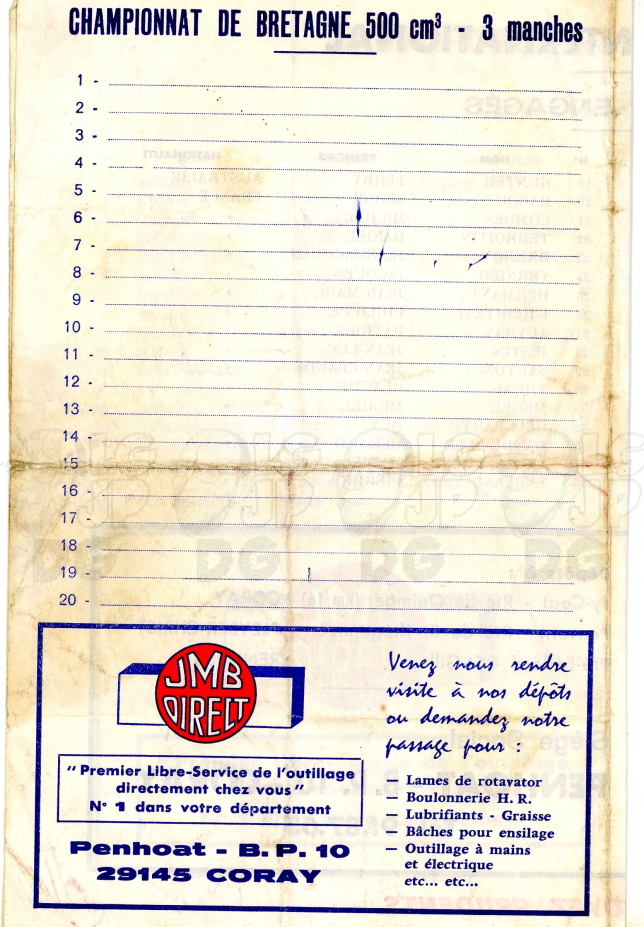 CHAMPIONNAT DE BRETAGNE 500 cm³ - 3 manches
1 -
2 -
3 -
4 -
5 -
6 -
7 -
8 -
9 -
10 -
11 -
12 -
13 -
14 -
15 -
16 -
17 -
18 -
19 -
20 -
JMB
DIRECT
"Premier Libre-Service de l'outillage
directement chez vous"
N° 1 dans votre département
Penhoat - B. P. 10
29145 CORAY
Venez nous rendre
visite à nos dépôts
ou demandez notre
passage pour :
— Lames de rotavator
— Boulonnerie H. R.
— Lubrifiants - Graisse
— Bâches pour ensilage
— Outillage à mains
et électrique
etc... etc...